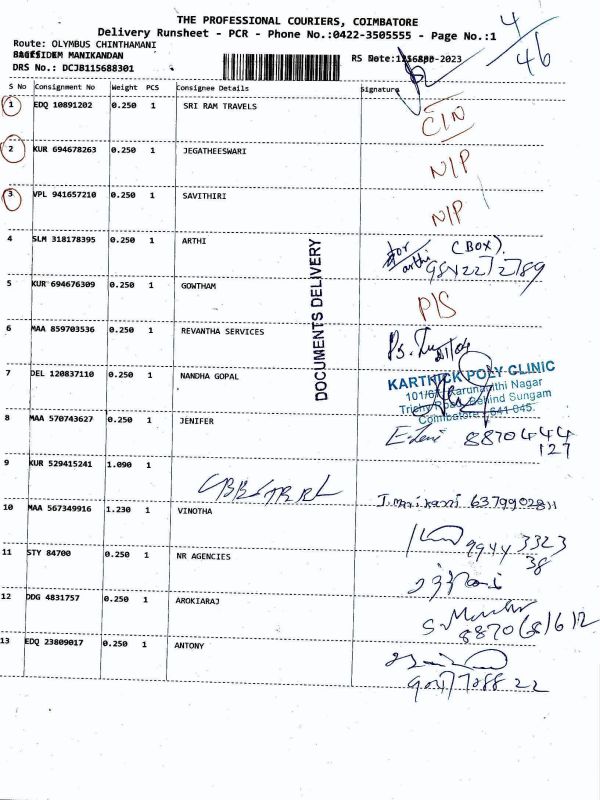 THE PROFESSIONAL COURIERS, COIMBATORE
Delivery Runsheet - PCR - Phone No.:0422-3505555 - Page No.:1
4/46
Route: OLYMBUS CHINTHAMANI
MANIKANDAN
DRS No.: DCJB115688301
S No Consignment No Weight PCS Consignee Details Signature
1 EDQ 10891202 0.250 1 SRI RAM TRAVELS
2 KUR 694678263 0.250 1 JEGATHEESWARI N/P
3 VPL 941657210 0.250 1 SAVITHIRI N/P
4 SLM 318178395 0.250 1 ARTHI for arthi (BOX)
5 KUR 694676309 0.250 1 GOWTHAM P/S
6 MAA 859703536 0.250 1 REVANTHA SERVICES
7 DEL 120837110 0.250 1 NANDHA GOPAL
KARTHICK POLY CLINIC
Karunanithi Nagar
Trichy Road, Behind Sungam
Coimbatore - 641 045.
8 MAA 570743627 0.250 1 JENIFER 8870444
127
9 KUR 529415241 1.090 1
J. Manikani 6379902811
10 MAA 567349916 1.230 1 VINOTHA 9944 3323
38
11 STY 84700 0.250 1 NR AGENCIES
12 DDG 4831757 0.250 1 AROKIARAJ
13 EDQ 23809017 0.250 1 ANTONY
DOCUMENTS DELIVERY